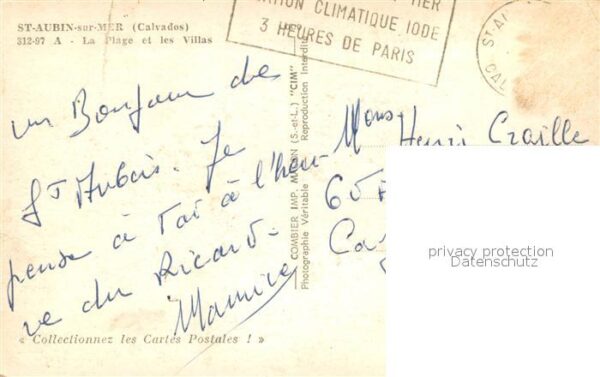 ST-AUBIN-sur-MER (Calvados)
312-97 A - La Plage et les Villas
MER
STATION CLIMATIQUE IODE
3 HEURES DE PARIS
ST-AU
CAL
un Bonjour de
St Aubin. Je
pense à toi à l'heu-
re du Ricard-
Maurice
« Collectionnez les Cartes Postales ! »
COMBIER IMP. MACON (S.-et-L.) "CIM"
Photographie Véritable Reproduction Interdite
Mons Henri Craille
60
Ca
privacy protection
Datenschutz